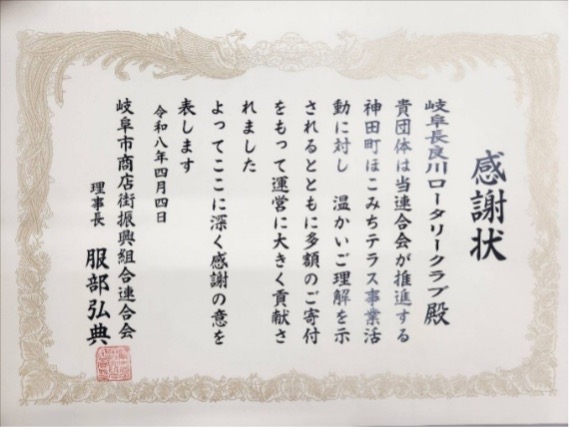 感謝状
岐阜長良川ロータリークラブ殿
貴団体は当連合会が推進する
神田町ほこみちテラス事業活
動に対し 温かいご理解を示
されるとともに多額のご寄付
をもって運営に大きく貢献さ
れました
よってここに深く感謝の意を
表します
令和八年四月四日
岐阜市商店街振興組合連合会
理事長 服部弘典